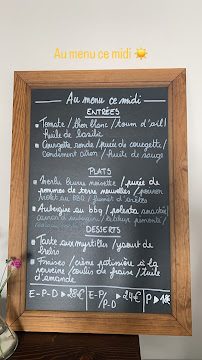 Au menu ce midi ☀️
Au menu ce midi
ENTRÉES
Tomate / thon blanc / toum d'ail /
huile de basilic
Courgette ronde / purée de courgette /
Condiment citron / huile de sauge
PLATS
Merlu beurre noisette / purée de
pommes de terre nouvelles / poivron
rouge au BBQ / fumet d'arêtes
Aubergine au bbq / polenta
DESSERTS
Tarte aux myrtilles / yaourt de
brebis
Fraises / crème pâtissière à la
verveine / coulis de fraise / tuile
d'amande
E-P-D ▸ 28€
E-P/
P-D ▸ 24€
P ▸